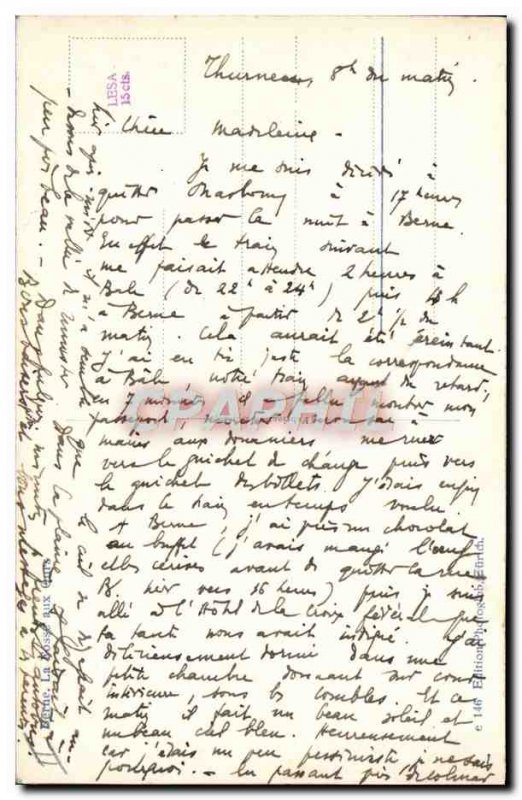 LESA
15 cts.
8h du matin.
Chère Madeleine -
Je me suis décidé à
quitter Strasbourg à 17 heures
pour passer la nuit à Berne.
En effet le train suivant
me faisait attendre 2 heures à
Bâle (de 22h à 24h) puis 4h
à Berne à partir de 2h 1/2 du
matin. Cela aurait été éreintant.
J'ai eu très juste la correspondance
à Bâle notre train ayant du retard,
en minutes il fallu montrer mon
passeport,
aux douaniers me ruer
vers le guichet de change puis vers
le guichet des billets. J'étais enfin
dans le train en temps voulu.
A Berne, j'ai pris un chocolat
au buffet (j'avais mangé l'oeuf
et les cerises avant de quitter la rue
B. hier vers 16 heures) puis je suis
allé à l'Hôtel de la Croix fédérale que
ta tante nous avait indiqué. J'ai
délicieusement dormi dans une
petite chambre donnant sur cour
intérieure, sous les combles. Et ce
matin il fait un beau soleil et
un beau ciel bleu. Heureusement
car j'étais un peu pessimiste je ne sais
pourquoi. - En passant près de Colmar
hier après-midi
dans la vallée de Munster. Dans la plaine
peu près beau. - Dans quelques minutes je prends l'autobus.
Berne. La Fosse aux ours.
e 146 Edition Photoglob, Zürich.
CPAPHIL